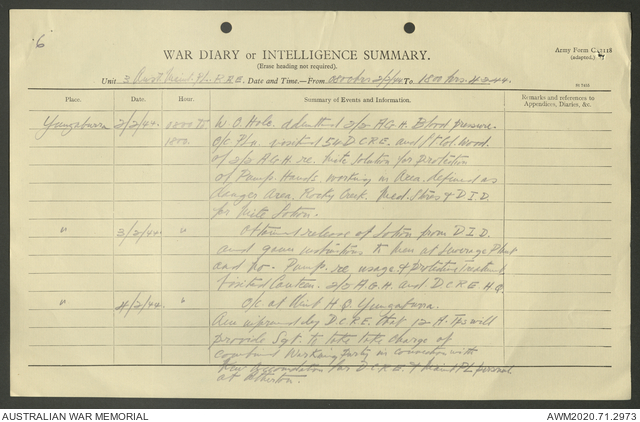 6
WAR DIARY or INTELLIGENCE SUMMARY.
(Erase heading not required).
Army Form C.2118
(adapted.)
Unit 3 Aust Maint. Pl. R.A.E. Date and Time.—From 0800 hrs 2/2/44 To 1800 hrs 4.2.44.
Place. Date. Hour. Summary of Events and Information. Remarks and references to
Appendices, Diaries, &c.
Yungaburra 2/2/44. 0800 to W.O. Hole. admitted 2/2 A.G.H. Blood pressure.
1800. O/C Pl. visited 54 D.C.R.E. and Lt Col. Wood
of 2/2 A.G.H. re. Mite Solution for Protection
of Pump Hands working in Area defined as
danger Area Rocky Creek. Med. Stores & D.I.D.
for Mite Lotion.
" 3/2/44. " Obtained release of Lotion from D.I.D.
and gave instructions to men at Sewerage Plant
and Pump re usage & Protective Treatment
Visited Canteen. 2/2 A.G.H. and D.C.R.E. H.Q
" 4/2/44. " O/C at Unit H.Q. Yungaburra.
Am informed by D.C.R.E. that 12 A. Tps will
provide Sgt. to take take charge of
combined Working Party in connection with
New Accomodation for D.C.R.E. & Maint PL personnel
at Atherton.
AUSTRALIAN WAR MEMORIAL AWM2020.71.2973